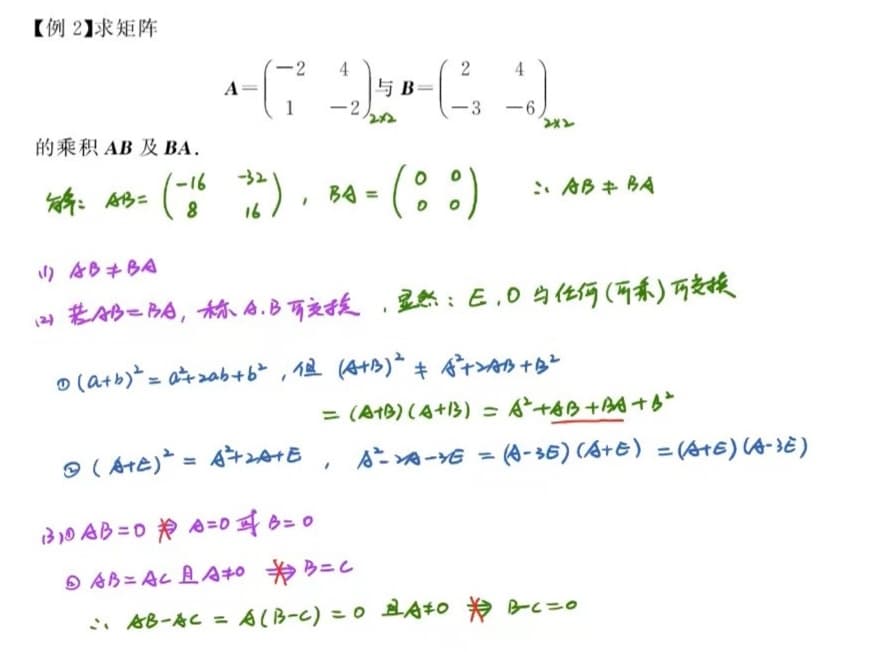 【例 2】求矩阵
A=(-2 4
1 -2)2×2 与 B=(2 4
-3 -6)2×2
的乘积 AB 及 BA.
解: AB=(-16 -32
8 16), BA=(0 0
0 0) ∴ AB≠BA
(1) AB≠BA
(2) 若AB=BA, 称A.B可交换, 显然: E, O 与任何(可乘)可交换
① (a+b)²=a²+2ab+b², 但 (A+B)²≠A²+2AB+B²
=(A+B)(A+B)=A²+AB+BA+B²
② (A+E)²=A²+2A+E, A²-2A-3E=(A-3E)(A+E)=(A+E)(A-3E)
(3)① AB=0 ⇏ A=0 或 B=0
② AB=AC 且 A≠0 ⇏ B=C
∴ AB-AC=A(B-C)=0 且A≠0 ⇏ B-C=0